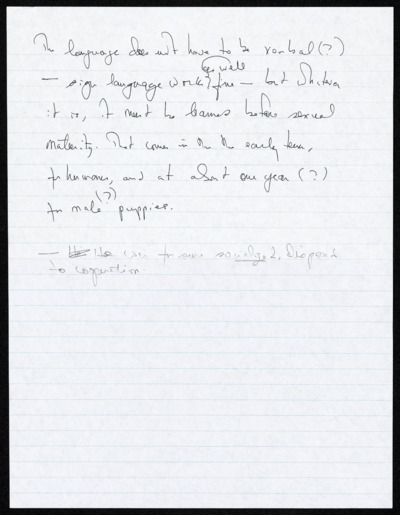 The language does not have to be verbal (?)
— sign language works fine as well — but whatever
it is, it must be learned before sexual
maturity. That comes in the early teens,
for humans, and at about one year (?)
for male (?) puppies.
— can
to cognition.